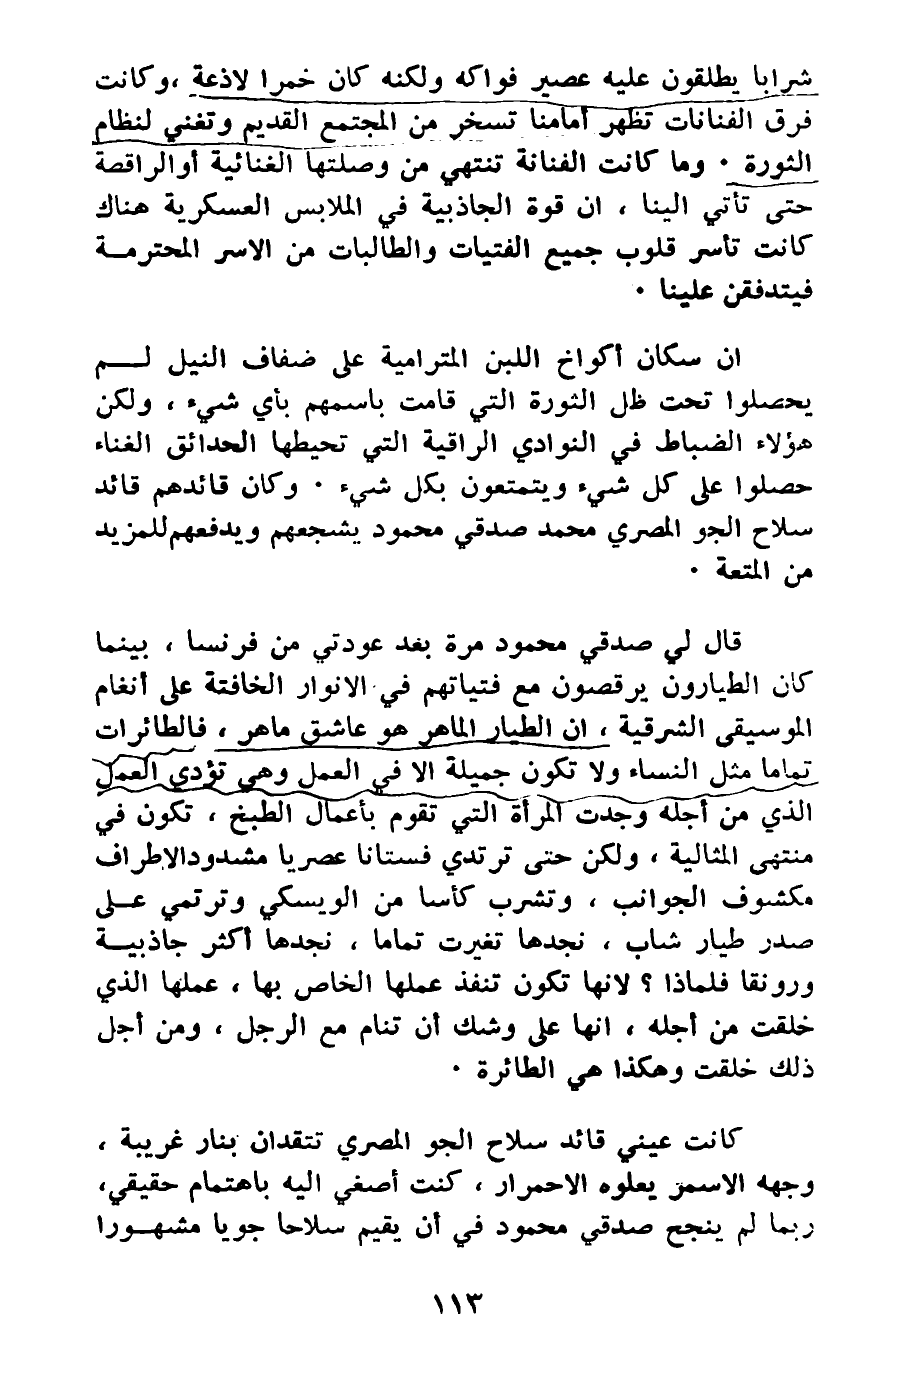 شرابا يطلقون عليه عصير فواكه ولكنه كان خمرا لاذعة ،وكانت
فرق الفنانات تظهر أمامنا تسخر من المجتمع القديم وتغني لنظام
الثورة ٠ وما كانت الفنانة تنتهي من وصلتها الغنائية أوالراقصة
حتى تأتي الينا ، ان قوة الجاذبية في الملابس العسكرية هناك
كانت تأسر قلوب جميع الفتيات والطالبات من الاسر المحترمـــة
فيتدفقن علينا ٠
ان سكان أكواخ اللبن المترامية على ضفاف النيل لــــم
يحصلوا تحت ظل الثورة التي قامت باسمهم بأي شيء ، ولكن
هؤلاء الضباط في النوادي الراقية التي تحيطها الحدائق الغناء
حصلوا على كل شيء ويتمتعون بكل شيء ٠ وكان قائدهم قائد
سلاح الجو المصري محمد صدقي محمود يشجعهم ويدفعهم للمزيد
من المتعة ٠
قال لي صدقي محمود مرة بعد عودتي من فرنسا ، بينما
كان الطيارون يرقصون مع فتياتهم في الانوار الخافتة على أنغام
الموسيقى الشرقية ، ان الطيار الماهر هو عاشق ماهر ، فالطائرات
تماما مثل النساء ولا تكون جميلة الا في العمل وهي تؤدي العمل
الذي من أجله وجدت المرأة التي تقوم بأعمال الطبخ ، تكون في
منتهى المثالية ، ولكن حتى ترتدي فستانا عصريا مشدودالاطراف
مكشوف الجوانب ، وتشرب كأسا من الويسكي وترتمي عــلى
صدر طيار شاب ، نجدها تغيرت تماما ، نجدها أكثر جاذبيـــة
ورونقا فلماذا ؟ لانها تكون تنفذ عملها الخاص بها ، عملها الذي
خلقت من أجله ، انها على وشك أن تنام مع الرجل ، ومن أجل
ذلك خلقت وهكذا هي الطائرة ٠
كانت عيني قائد سلاح الجو المصري تتقدان بنار غريبة ،
وجهه الاسمر يعلوه الاحمرار ، كنت أصغي اليه باهتمام حقيقي،
ربما لم ينجح صدقي محمود في أن يقيم سلاحا جويا مشهــورا
١١٣